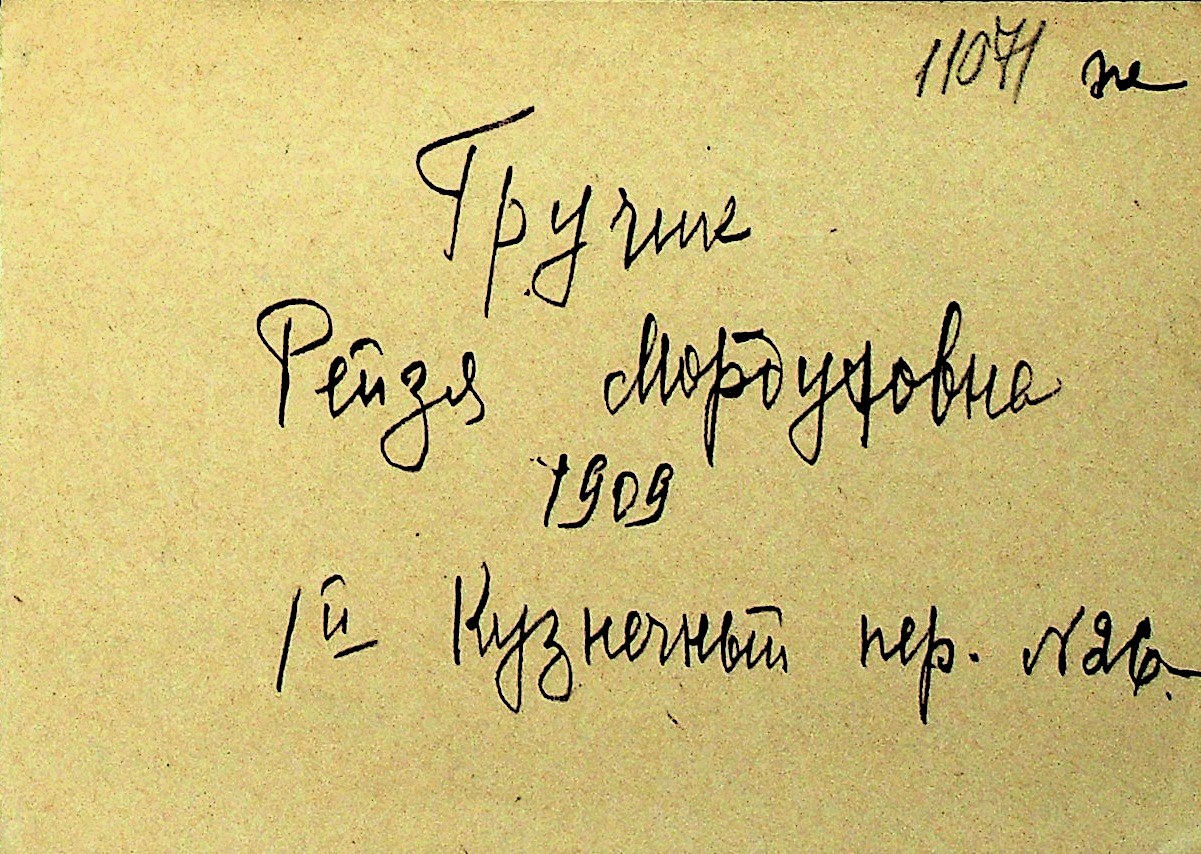 11071 не
Гручик
Рейзя Мордуховна
1909
1й Кузнечный пер. №26